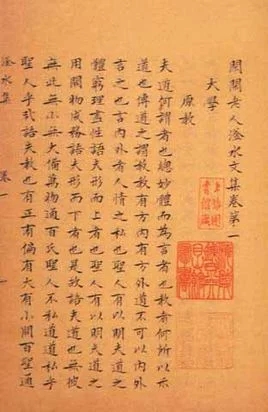 閑閑老人滏水文集卷第一
大學
原教
夫道何謂者也總妙體而為言者也教者何所以示
道也傳道之謂教教有方内有方外道不可以内外
言之也言内外者人情之私也聖人有以明夫道之
體窮理盡性語夫形而上者也聖人有以明夫道之
用開物成務語夫形而下者也是故語夫道也無彼
無此無小無大備萬物通百氏聖人不私道道私乎
聖人乎哉語夫教也有正有偏有大有小開百聖通
滏水集
卷一
一
上海圖
書館藏